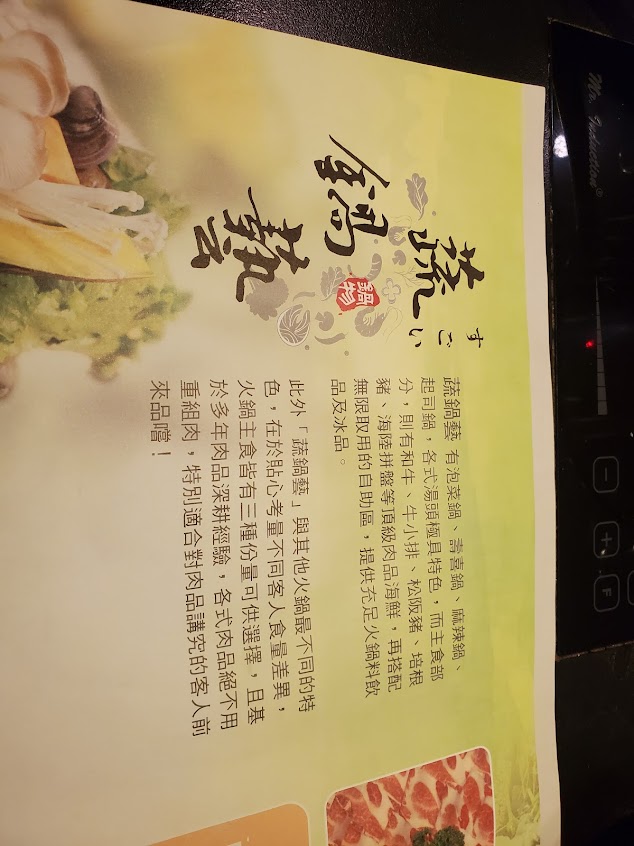 すごい
蔬鍋藝
鍋物
蔬鍋藝 有泡菜鍋、壽喜鍋、麻辣鍋、
起司鍋,各式湯頭極具特色,而主食部
分,則有和牛、牛小排、松阪豬、培根
豬、海陸拼盤等頂級肉品海鮮,再搭配
無限取用的自助區,提供充足火鍋料飲
品及冰品。
此外「蔬鍋藝」與其他火鍋最不同的特
色,在於貼心考量不同客人食量差異,
火鍋主食皆有三種份量可供選擇,且基
於多年肉品深耕經驗,各式肉品絕不用
重組肉,特別適合對肉品講究的客人前
來品嚐!
Mr. Induction®
−
+
F